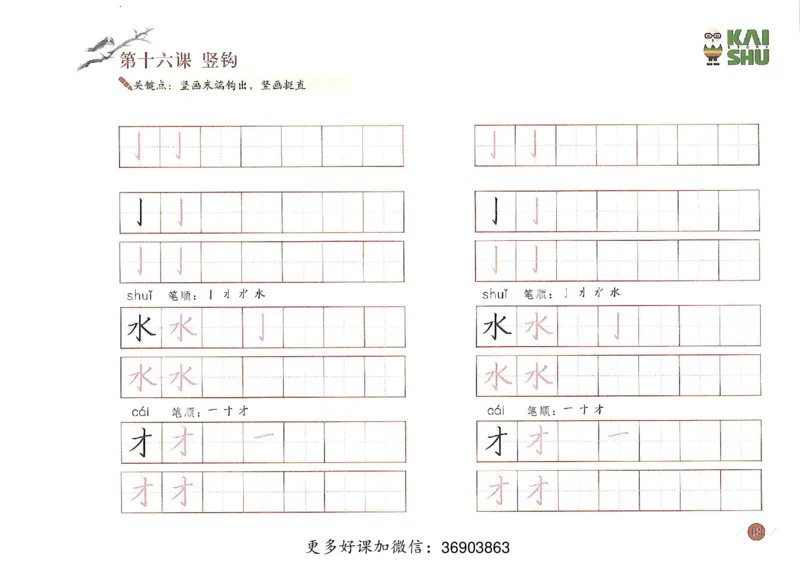 第十六课 竖钩
KAI
STORY
SHU
关键点：竖画末端钩出，竖画挺直
亅 亅
亅 亅
亅 亅
亅 亅
亅 亅
亅 亅
shuǐ 笔顺：亅 水
水 水 亅
水 水
shuǐ 笔顺：亅 水
水 水 亅
水 水
cái 笔顺：一 十 才
才 才 一
才 才
cái 笔顺：一 十 才
才 才 一
才 才
18
更多好课加微信：36903863